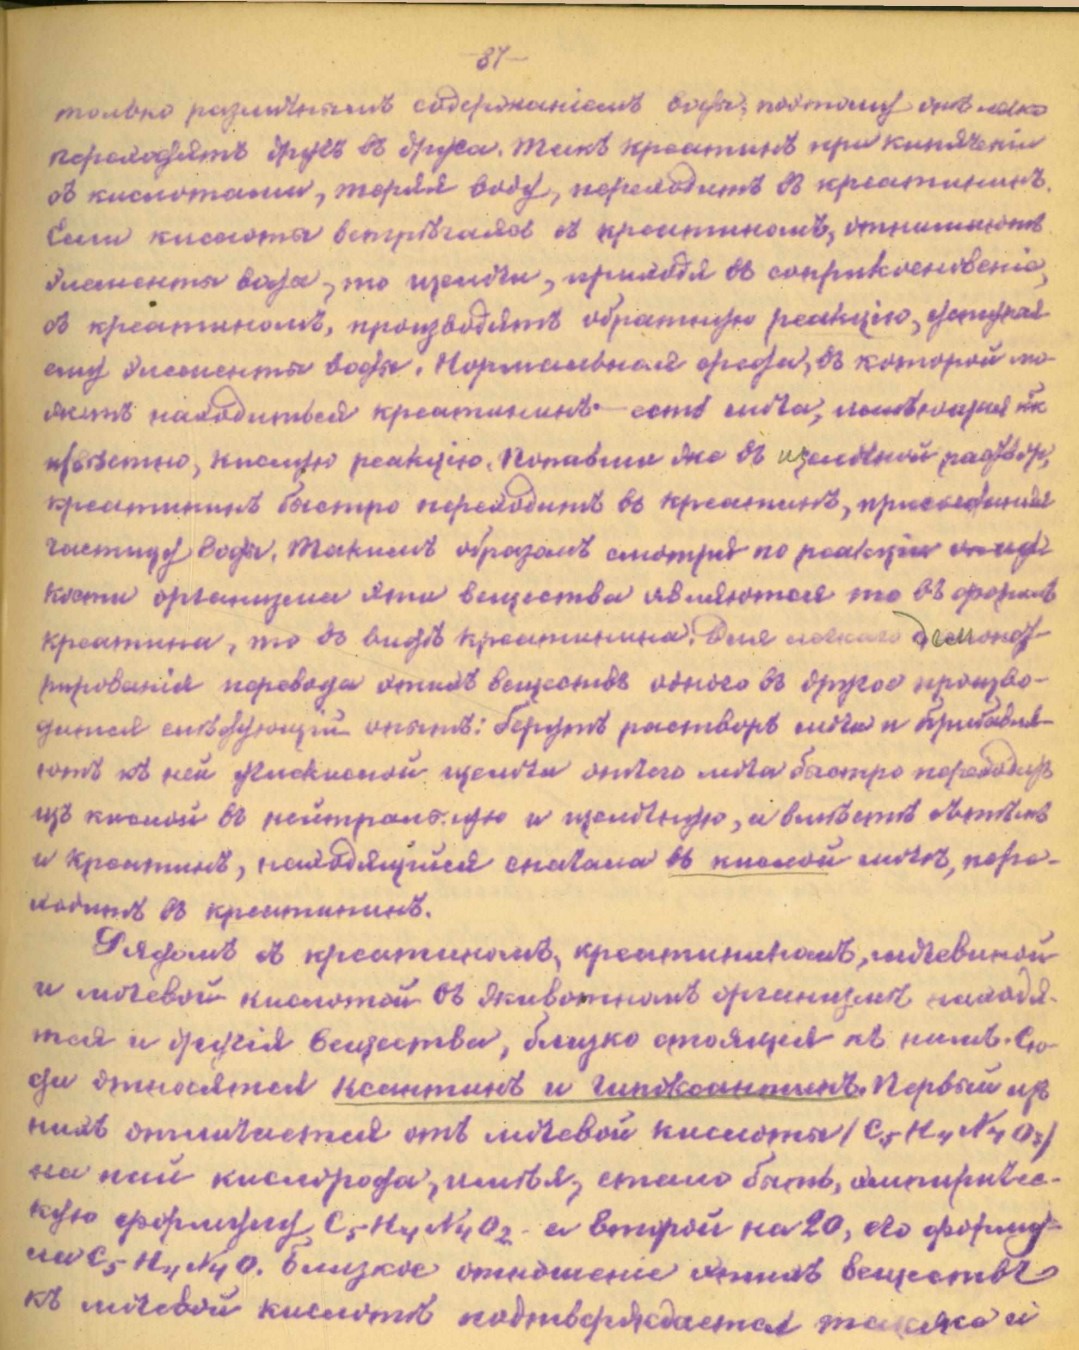 -87-
только различнымъ содержаніемъ воды, поэтому онѣ легко
переходятъ другъ въ друга. Такъ креатинъ при кипяченіи
съ кислотами, теряя воду, переходитъ въ креатининъ.
Если кислоты встрѣчаясь съ креатиномъ, отнимаютъ
элементы воды, то щелочи, приходя въ соприкосновеніе,
съ креатиномъ, производятъ обратную реакцію, уступая
ему элементы воды. Нормальная среда, въ которой мо-
жетъ находиться креатининъ – есть моча, имѣющая какъ
извѣстно, кислую реакцію. Попавши же въ щелочной растворъ,
креатининъ быстро переходитъ въ креатинъ, присоединяя
частицу воды. Такимъ образомъ смотря по реакціи жид-
кости организма эти вещества являются то въ формѣ
креатина, то въ видѣ креатинина. Для легкаго демонст-
рированія перевода этихъ веществъ одного въ другое произво-
дится слѣдующій опытъ: берутъ растворъ мочи и прибавля-
ютъ къ ней углекислой щелочи отчего моча быстро переходитъ
изъ кислой въ нейтральную и щелочную, а вмѣстѣ съ тѣмъ
и креатинъ, находящійся сначала въ кислой мочѣ, пере-
ходитъ въ креатининъ.
Рядомъ съ креатиномъ, креатининомъ, мочевиной
и мочевой кислотой въ животномъ организмѣ находя-
тся и другія вещества, близко стоящія къ нимъ. Сю-
да относятся ксантинъ и гипоксантинъ. Первый изъ
нихъ отличается отъ мочевой кислоты (C5 H4 N4 O3)
на пай кислорода, имѣя, стало быть, эмпириче-
скую формулу C5 H4 N4 O2 - а второй на 2O, его форму-
ла C5 H4 N4 O. Близкое отношеніе этихъ веществъ
къ мочевой кислотѣ подтверждается также и